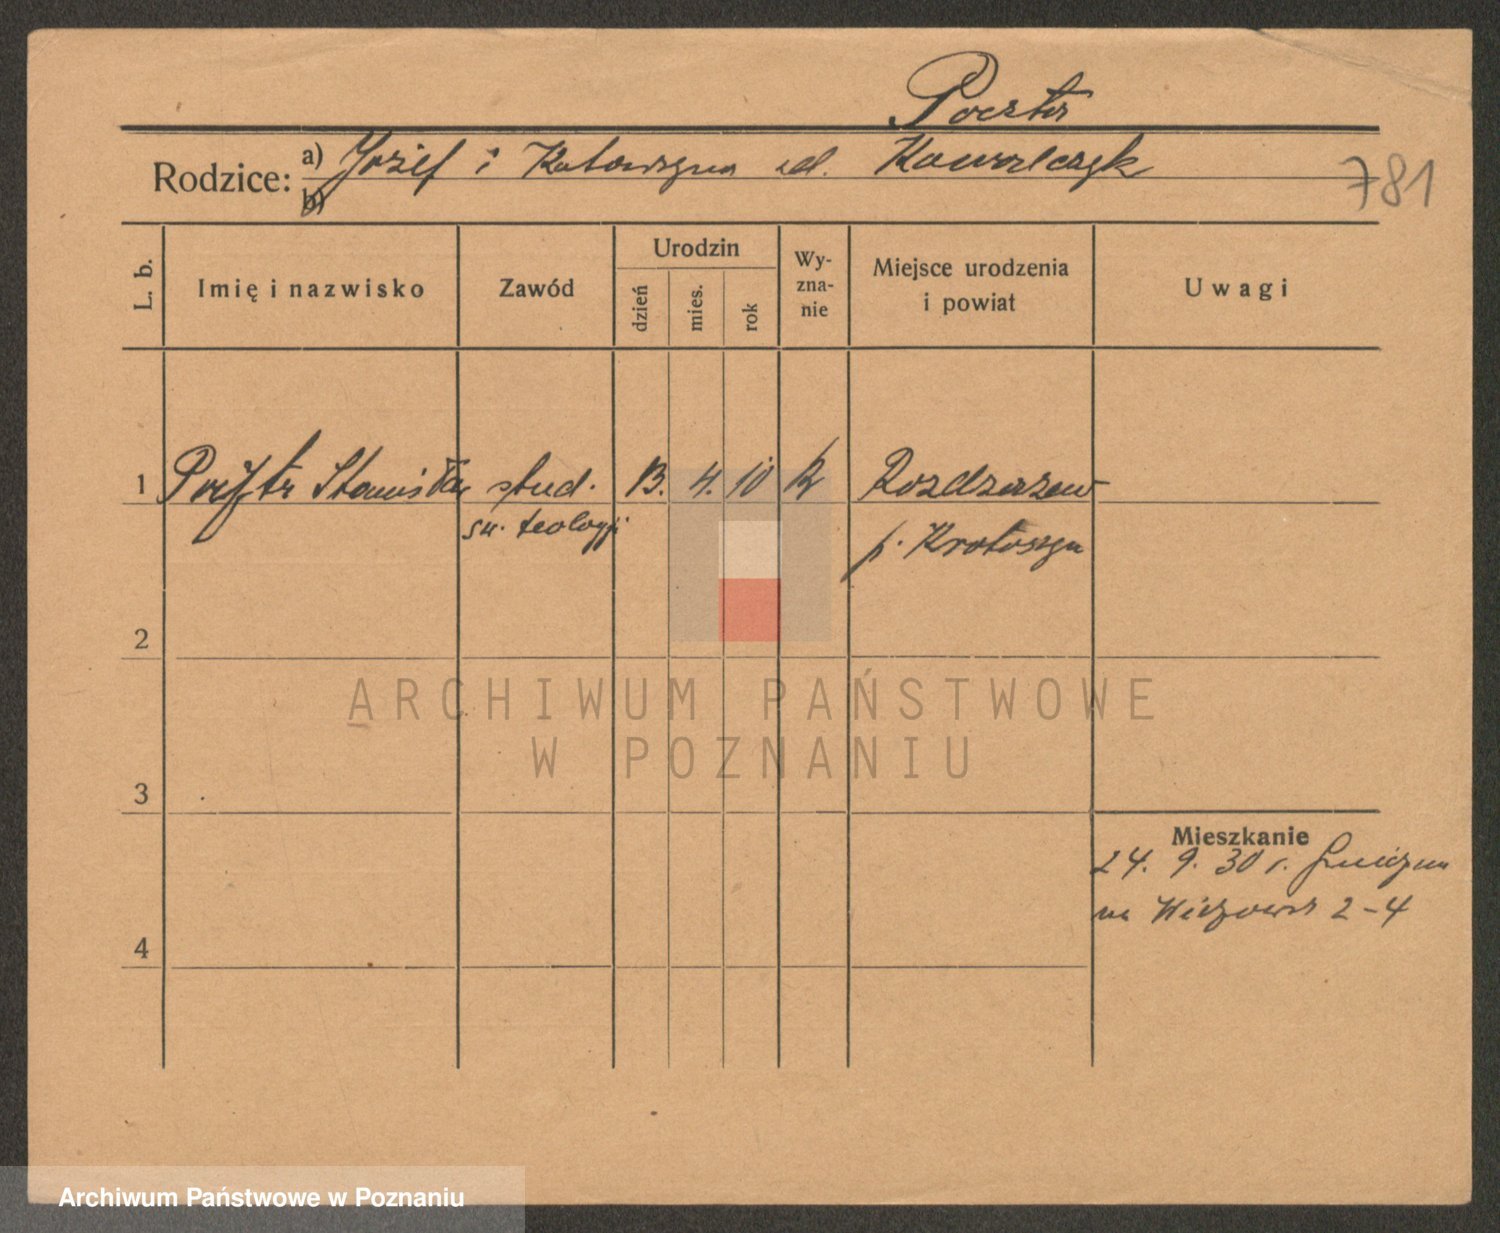 Poczta
Rodzice: a) Józef i Katarzyna ud. Kawalczyk
b)
781
L. b.
Imię i nazwisko
Zawód
Urodzin
dzień
mies.
rok
Wy-
zna-
nie
Miejsce urodzenia
i powiat
Uwagi
1 Stanisław stud. 13. 4. 10 Rozdrażew
św. teologji p. Krotoszyn
2
ARCHIWUM PAŃSTWOWE
W POZNANIU
3
Mieszkanie
24. 9. 30 r. Gniezna
na 2-4
4
Archiwum Państwowe w Poznaniu